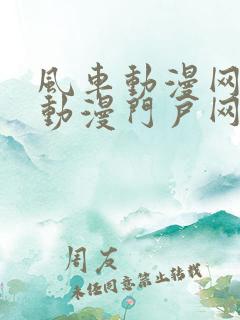 風車動漫网
動漫門戶网
周友
未经同意禁止转载